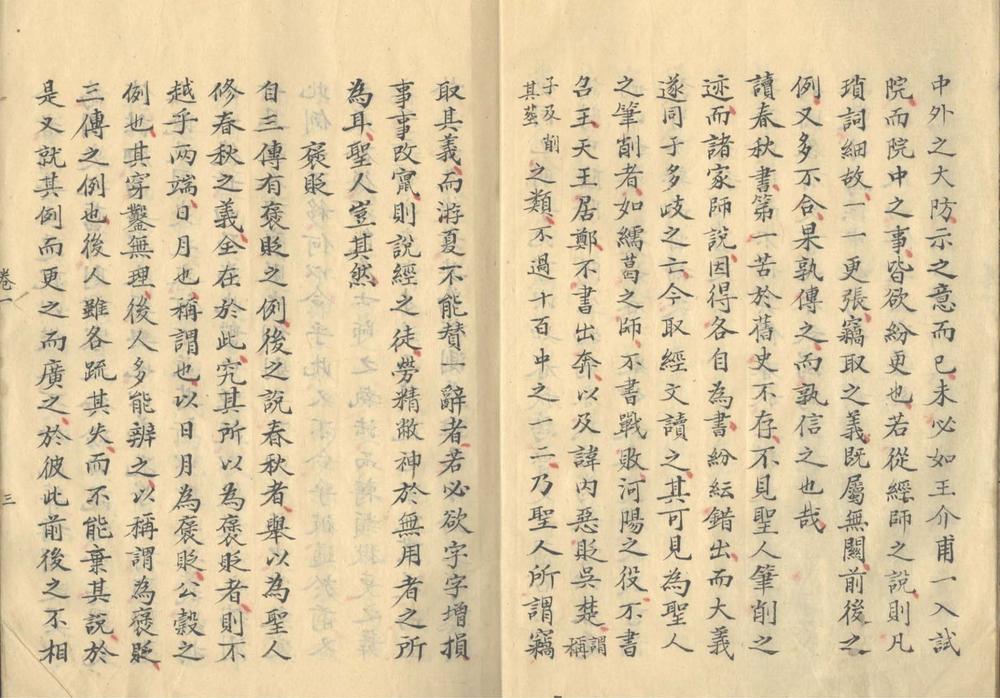 中外之大防示之意而已未必如王介甫一入試
院而院中之事皆欲紛更也若從經師之說則凡
瑣詞細故一一更張竊取之義既屬無關前後之
例又多不合果孰傳之而孰信之也哉
讀春秋書第一苦於舊史不存不見聖人筆削之
迹而諸家師說因得各自為書紛紜錯出而大義
遂同于多歧之亡今取經文讀之其可見為聖人
之筆削者如繻葛之師不書戰敗河陽之役不書
召王天王居鄭不書出奔以及諱內惡貶吳楚謂稱
子及削其葬之類不過十百中之一二乃聖人所謂竊
取其義而游夏不能贊一辭者若必欲字字增損
事事改竄則說經之徒勞精敝神於無用者之所
為耳聖人豈其然
褒貶
自三傳有褒貶之例後之說春秋者舉以為聖人
修春秋之義全在於此究其所以為褒貶者則不
越乎兩端日月也稱謂也以日月為褒貶公穀之
例也其穿鑿無理後人多能辨之以稱謂為褒貶
三傳之例也後人雖各疏其失而不能棄其說於
是又就其例而更之而廣之於彼此前後之不相
卷一
三